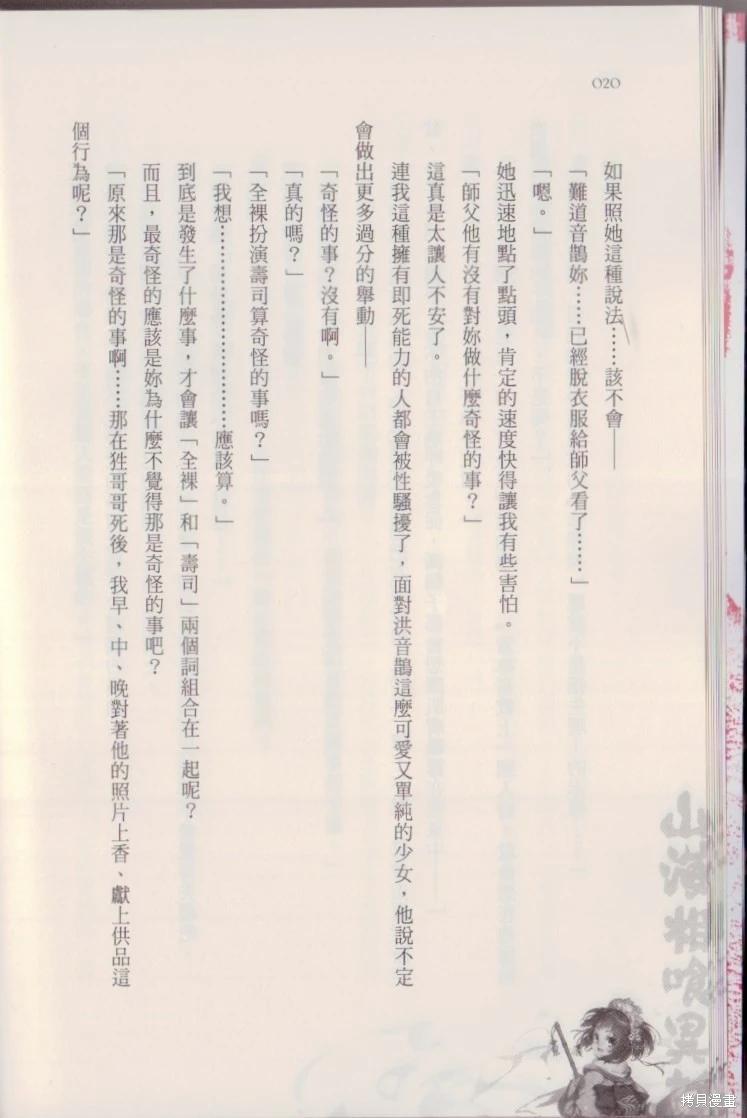 020
如果照她這種說法……該不會——
「難道音鵲妳……已經脫衣服給師父看了……」
「嗯。」
她迅速地點了點頭，肯定的速度快得讓我有些害怕。
「師父他有沒有對妳做什麼奇怪的事？」
這真是太讓人不安了。
連我這種擁有即死能力的人都會被性騷擾了，面對洪音鵲這麼可愛又單純的少女，他說不定
會做出更多過分的舉動——
「奇怪的事？沒有啊。」
「真的嗎？」
「全裸扮演壽司算奇怪的事嗎？」
「我想……………………應該算。」
到底是發生了什麼事，才會讓「全裸」和「壽司」兩個詞組合在一起呢？
而且，最奇怪的應該是妳為什麼不覺得那是奇怪的事吧？
「原來那是奇怪的事啊……那在狌哥哥死後，我早、中、晚對著他的照片上香、獻上供品這
個行為呢？」
山海相喰異
拷貝漫畫